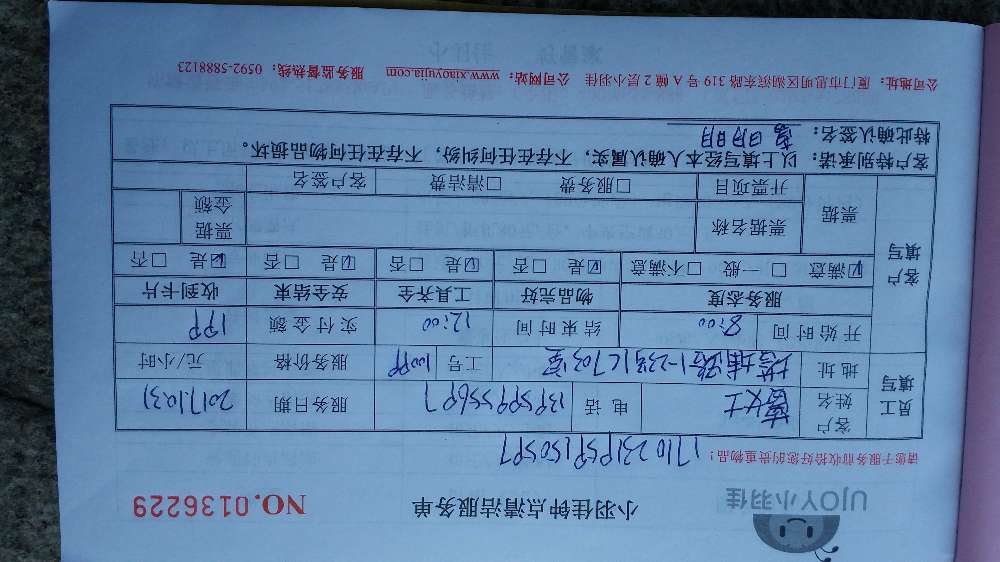 UJOY小羽佳
小羽佳钟点清洁服务单
NO.0136229
请您于服务前收拾好您的贵重物品!
1710231959150597
员工填写
客户姓名 女士 电话 13959955697 服务日期 2017.10.31
地址 塔埔路 703室 工号 10099 服务价格 元/小时
开始时间 8:00 结束时间 12:00 实付金额 199
客户填写
服务态度 物品完好 工具齐全 安全结束 收到卡片
☑满意 □一般 □不满意 ☑是 □否 ☑是 □否 ☑是 □否 ☑是 □否
票据 票据名称 票据金额
开票项目 □服务费 □清洁费 客户签名
客户特别承诺:以上填写经本人确认属实,不存在任何纠纷,不存在任何物品损坏。
特此确认签名:
公司地址:厦门市思明区湖滨东路 319 号 A 幢 2 层小羽佳 公司网站:www.xiaoyujia.com 服务监督热线:0592-5888123